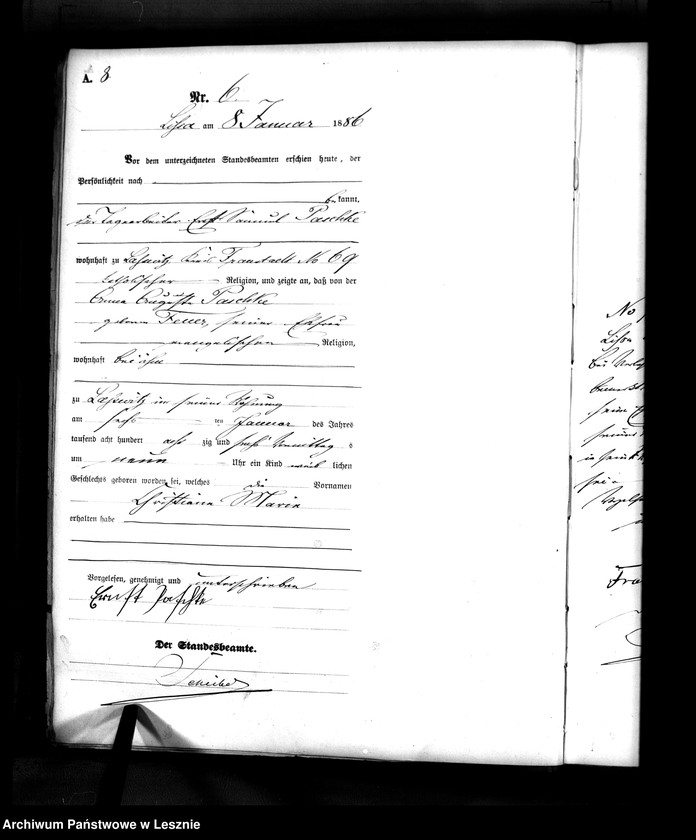 A. 8
Nr. 6
Lissa am 8 Januar 1886
Vor dem unterzeichneten Standesbeamten erschien heute, der
Persönlichkeit nach
bekannt,
der Tagearbeiter Ernst Samuel Paschke
wohnhaft zu Laßwitz Kreis Fraustadt No 69
katholischer Religion, und zeigte an, daß von der
Anna Auguste Paschke
geborene seiner Ehefrau
evangelischen Religion,
wohnhaft bei ihm
zu Laßwitz in seiner Wohnung
am sechs ten Januar des Jahres
tausend acht hundert acht zig und sechs Vormittag s
um neun Uhr ein Kind weib lichen
Geschlechts geboren worden sei, welches die Vornamen
Christiane Marie
erhalten habe
Vorgelesen, genehmigt und unterschrieben
Ernst Paschke
Der Standesbeamte.
No
Lissa
bei
in
sei
Fra
Archiwum Państwowe w Lesznie